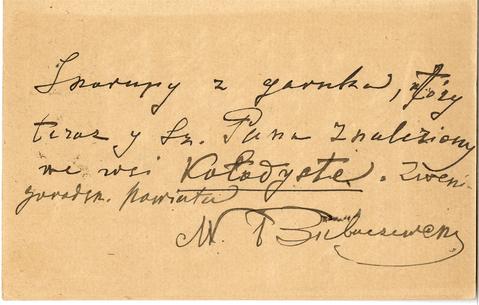 Skorupy z garnka, który
teraz y Sz. Pana znaleziony
we wsi Kołodyste. Zweni-
gorodsk. powiata